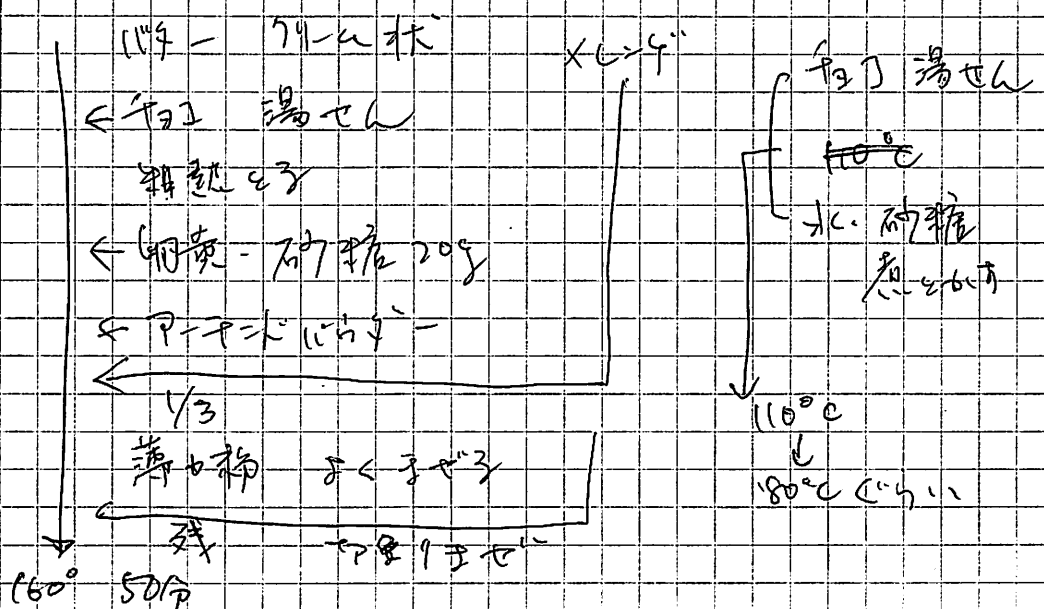 バター クリーム状
メレンゲ
← チョコ 湯せん
粗熱とる
← 卵黄 - 砂糖 20g
← アーモンドパウダー
1/3
薄力粉 よくまぜる
残 切りまぜ
160° 50分
チョコ 湯せん
110°C
水・砂糖
煮とかす
110°C
↓
80°C ぐらい